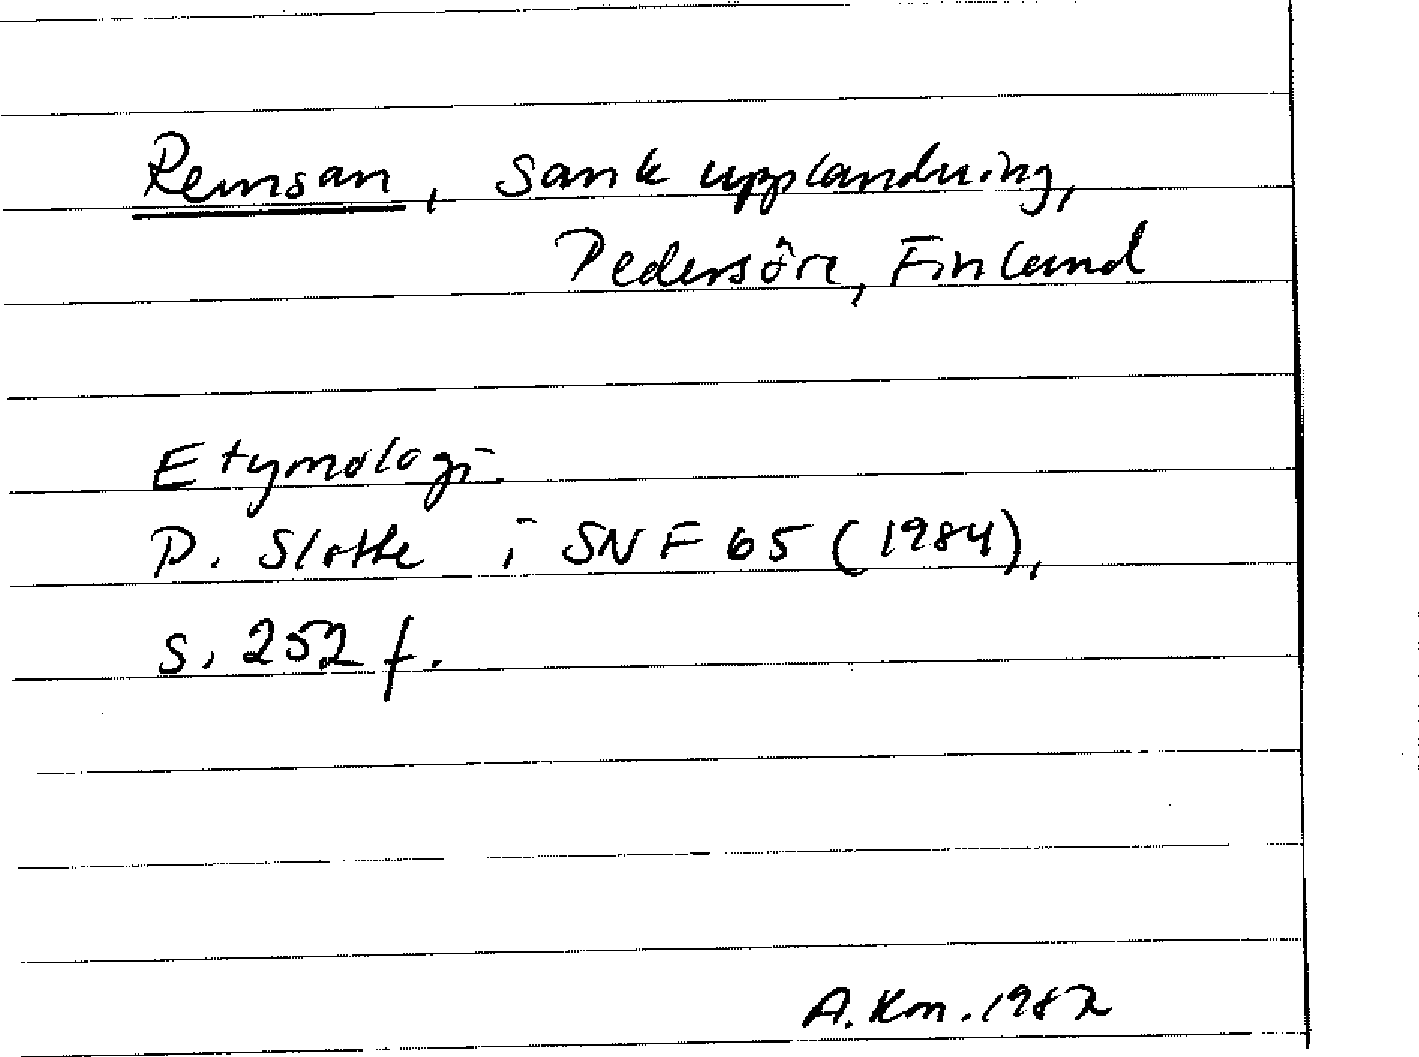 Remsan, sank upplandning,
Pedersöre, Finland
Etymologi
P. Slotte i SNF 65 (1984),
s. 252 f.
A. Km. 1987